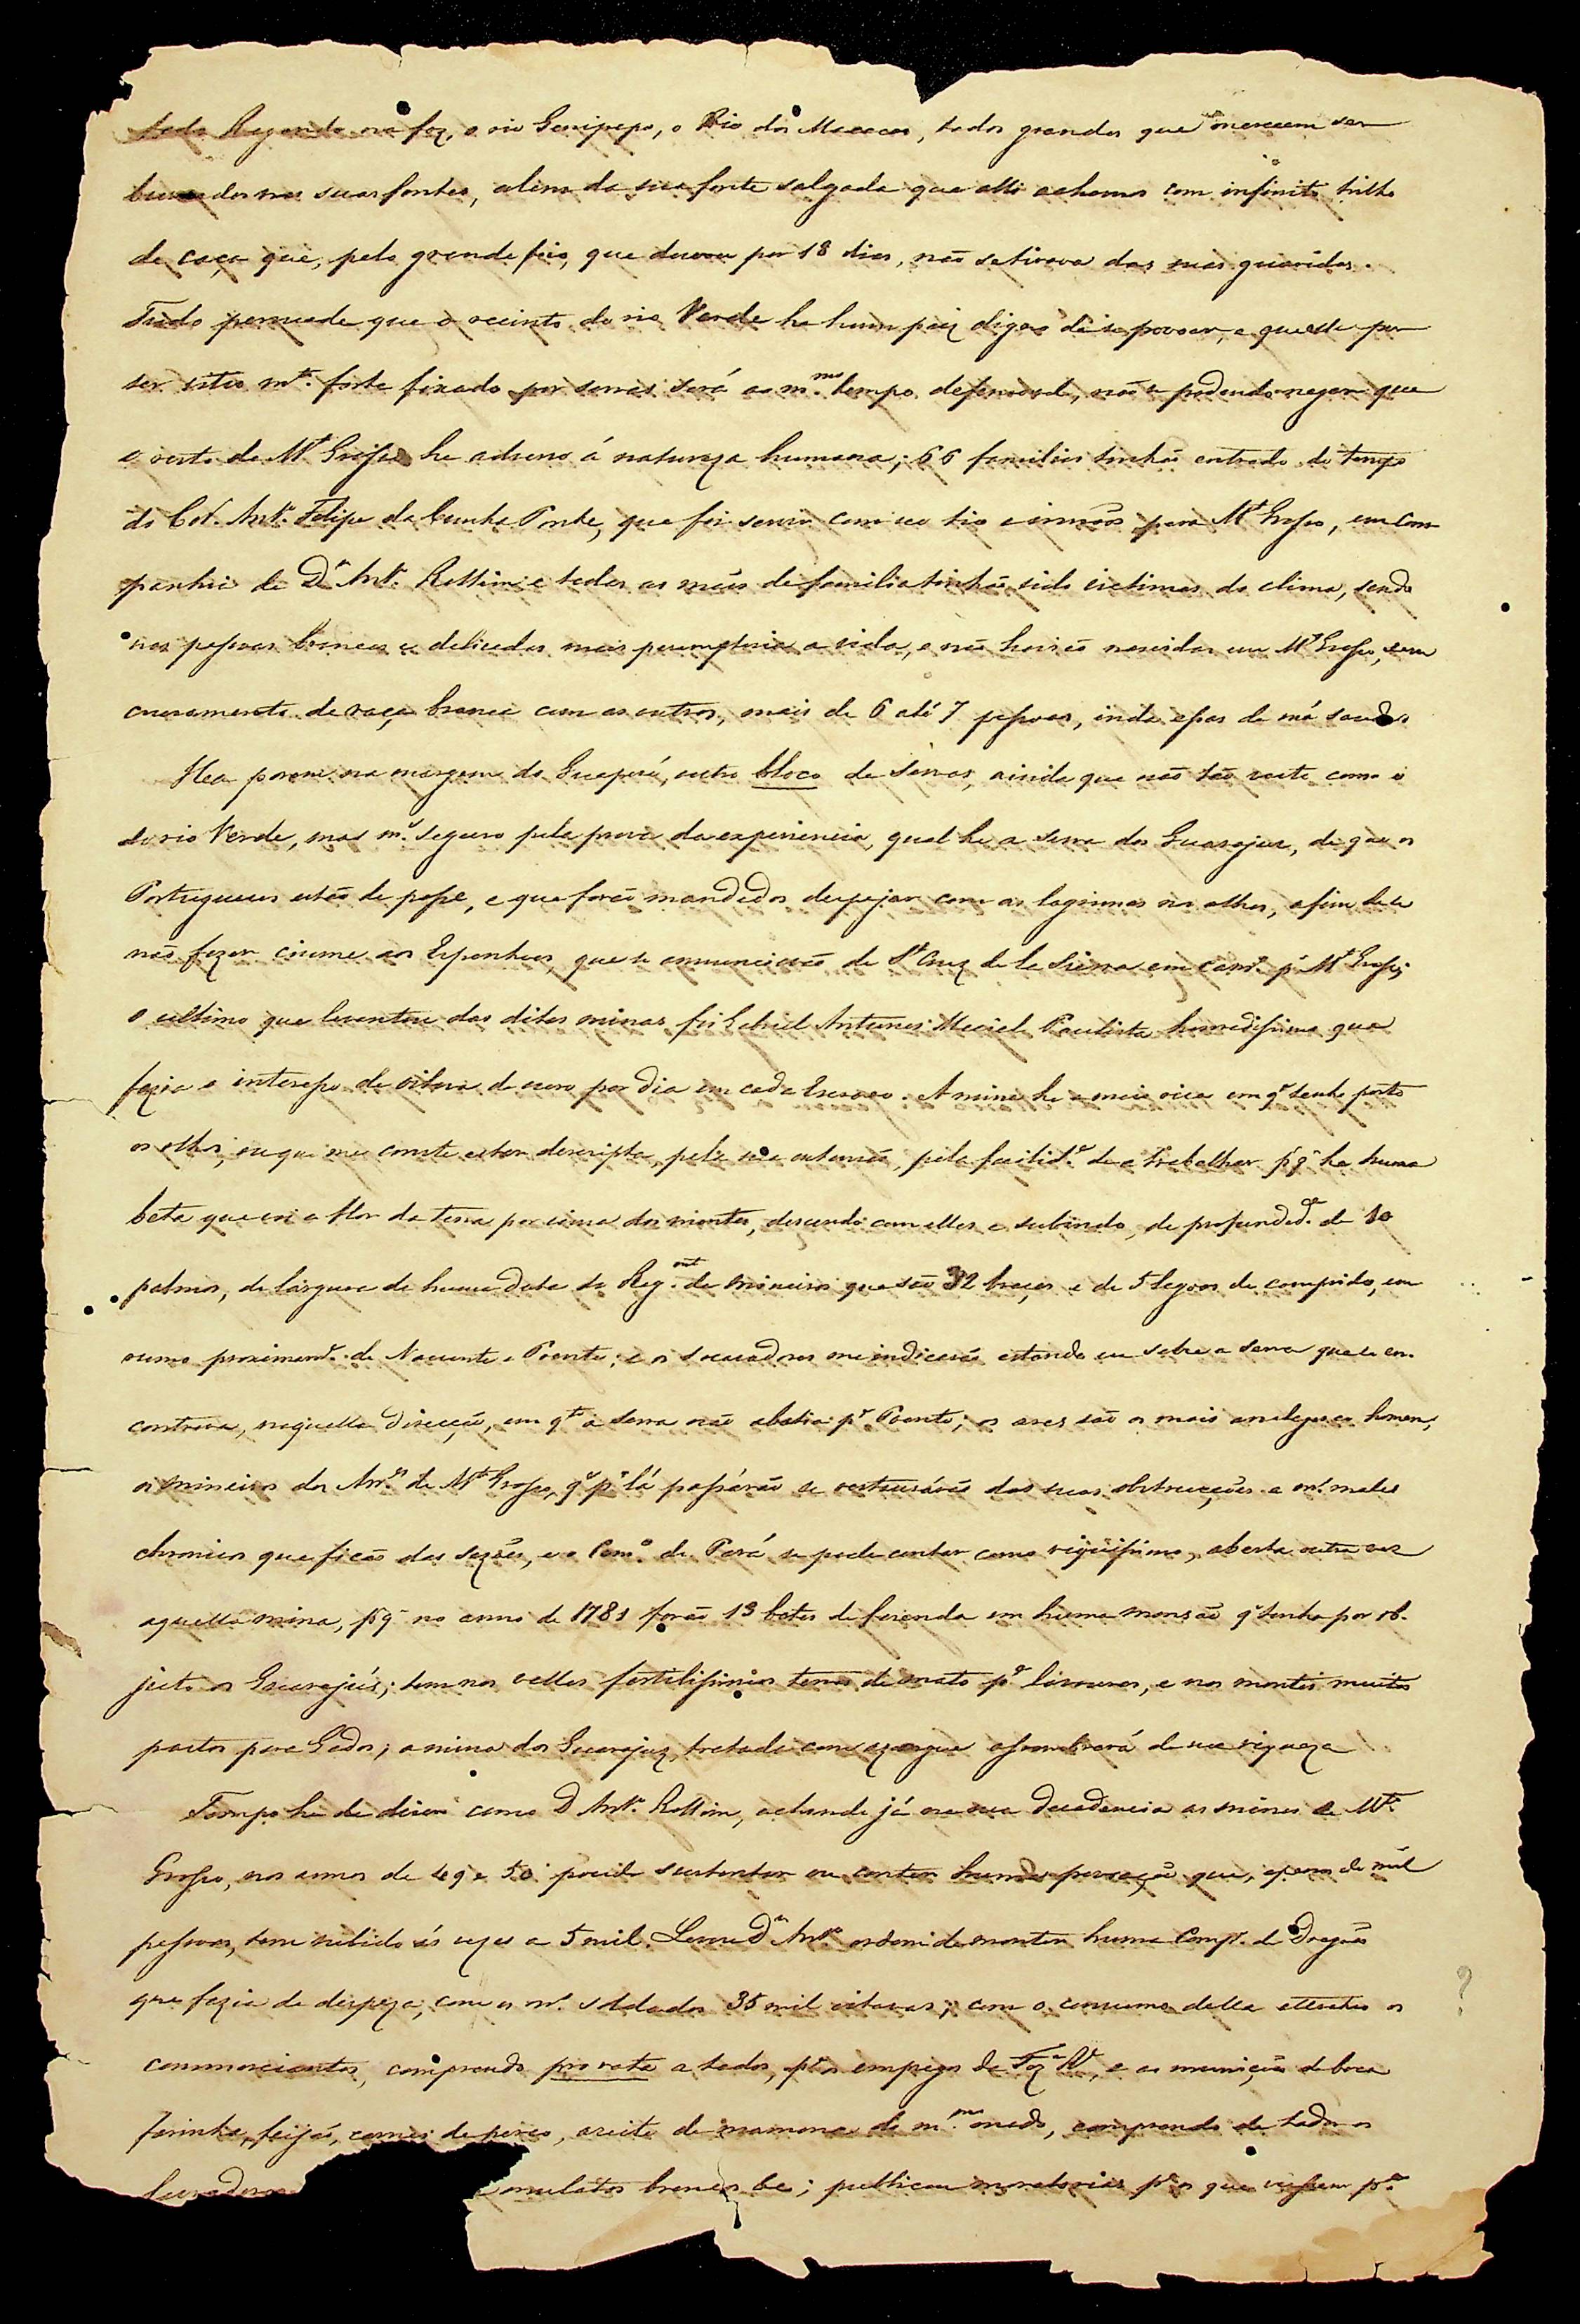 toda Redonda na foz, o rio Genipapo, o Rio dos Macacos, todos grandes que merecem ser
buscados nas suas fontes, alem da sua fonte salgada que alli achamos com infinito trilho
de caça que, pelo grande frio, que durou por 18 dias, não se tirava das suas guaridas.
Tudo persuade que o recinto do rio Verde he hum paiz digno de se povoar, e quelle por
ser sitio mto. forte fixado por serras será ao mmo. tempo defensavel, não se podendo negar que
o resto de Mto Grosso he adverso á natureza humana; 66 familias tinhão entrado do tempo
do Cel. Anto. Felipe da Cunha Ponte, que foi senão com seo tio e irmãos para Mto Grosso, em com
panhia de Dn Anto. Rollim e todas as mais de familia tinhão sido victimas do clima, sendo
nas pessoas brancas e delicadas mais peremptoria a vida, e não haverão nascidas em Mto Grosso, sem
cruzamento de raça branca com as outras, mais de 6 até 7 pessoas, inda essas de má saude
Hea porem na margem do Guaporé, outro bloco de serras, ainda que não tão vasto como o
do rio Verde, mas ms. seguro pela prova da experiencia, qual he a serra dos Guarajuz, de que os
Portuguezes estão de posse, e que forão mandados despejar com as lagrimas nos olhos, afim de se
não fazer ciume aos Espanhoes, que se annunciavão de Sta Cruz de la Sierra em camo. pa Mto Grosso;
o ultimo que levantou das ditas minas foi Gabriel Antunes Maciel Paulista honradissimo que
fazia o interesse de oitava de ouro por dia em cada Escravo. A mina he a mais rica em q tenho posto
os olhos, ou que me conste estar descripta, pela sua extensão, pela facilide. de a trabalhar pq he huma
beta que vai a flor da terra por cima dos montes, descendo com elles e subindo, de profundide. de 10
palmos, de largura de huma Data do Regmt. de Mineiros que são 32 braças e de 5 legoas de comprido, em
rumo proximamte. de Nascente e Poente; e os socavadores me indicarão estando eu sobre a serra que se en-
contrava, naquella direcção, em qto a serra não abatia pa Poente; os ares são os mais analogos ao homem,
os mineiros dos Arres de Mto Grosso, q pa lá passárão se restaurárão das suas obstrucções e ms. males
chronicos que ficão das sezões, e o Como. do Pará se pode contar como riquissimo, aberta outra vez
aquella mina, pq no anno de 1781 forão 13 botes de fazenda em huma monsão q tenha por ob-
jecto os Guarajús; tem nos valles fertilissimas terras de mato pa lavouras, e nos montes muitos
pastos para Gados; a mina dos Guarajuz, tratada com azougue assombrará de sua riqueza
Tempo he de dizer como D Anto. Rollim, achando já em sua decadencia as minas de Mto.
Grosso, nos annos de 49 e 50 poude sustentar ou conter huma povoação que, apenas de mil
pessoas, tem subido ás vezes a 5 mil. Levou Dn Anto. ordem de montar huma Compa. de Dragões
que fazia de despeza, com os ms. soldados 35 mil oitavas; com o consumo della attrahio os
commerciantes, comprando pro rata a todos, pa os empregos da Faza Rl, e as munições de boca
farinha, feijão, carnes de porco, azeite de mamona do mmo modo, comprando de todos os
lavradores mulatos brancos &a; publicou moratorias pa os que viessem pa
?